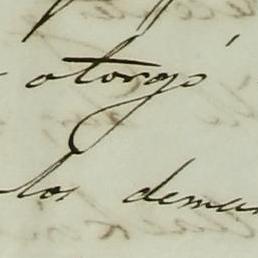 otorgó
los deman